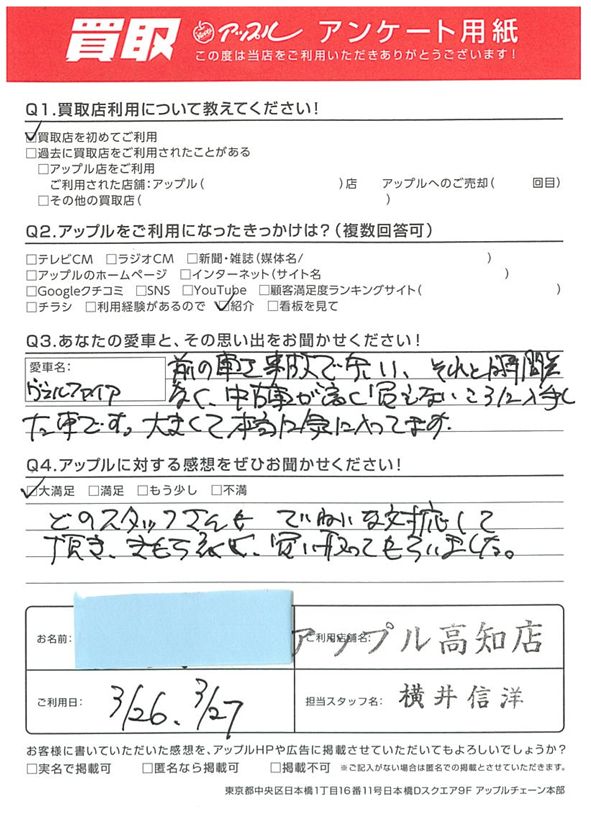 買取 アップル アンケート用紙
この度は当店をご利用いただきありがとうございます!
Q1.買取店利用について教えてください!
☑買取店を初めてご利用
□過去に買取店をご利用されたことがある
□アップル店をご利用
ご利用された店舗:アップル( )店 アップルへのご売却( 回目)
□その他の買取店( )
Q2.アップルをご利用になったきっかけは?(複数回答可)
□テレビCM □ラジオCM □新聞・雑誌(媒体名/ )
□アップルのホームページ □インターネット(サイト名 )
□Googleクチコミ □SNS □YouTube □顧客満足度ランキングサイト( )
□チラシ □利用経験があるので ☑紹介 □看板を見て
Q3.あなたの愛車と、その思い出をお聞かせください!
愛車名:
ヴェルファイア
前の車を事故で失い、それと時間差
なく、中古車が高く買えないころに入手し
た車です。大きくて本当に気に入ってます。
Q4.アップルに対する感想をぜひお聞かせください!
☑大満足 □満足 □もう少し □不満
どのスタッフさんも ていねいな対応して
頂き、きもち良く、買い取ってもらいました。
お名前:
ご利用店舗名:
アップル高知店
ご利用日:
3/26、3/27
担当スタッフ名:
横井信洋
お客様に書いていただいた感想を、アップルHPや広告に掲載させていただいてもよろしいでしょうか?
□実名で掲載可 □匿名なら掲載可 □掲載不可 ※ご記入がない場合は匿名での掲載とさせていただきます。
東京都中央区日本橋1丁目16番11号日本橋Dスクエア9F アップルチェーン本部